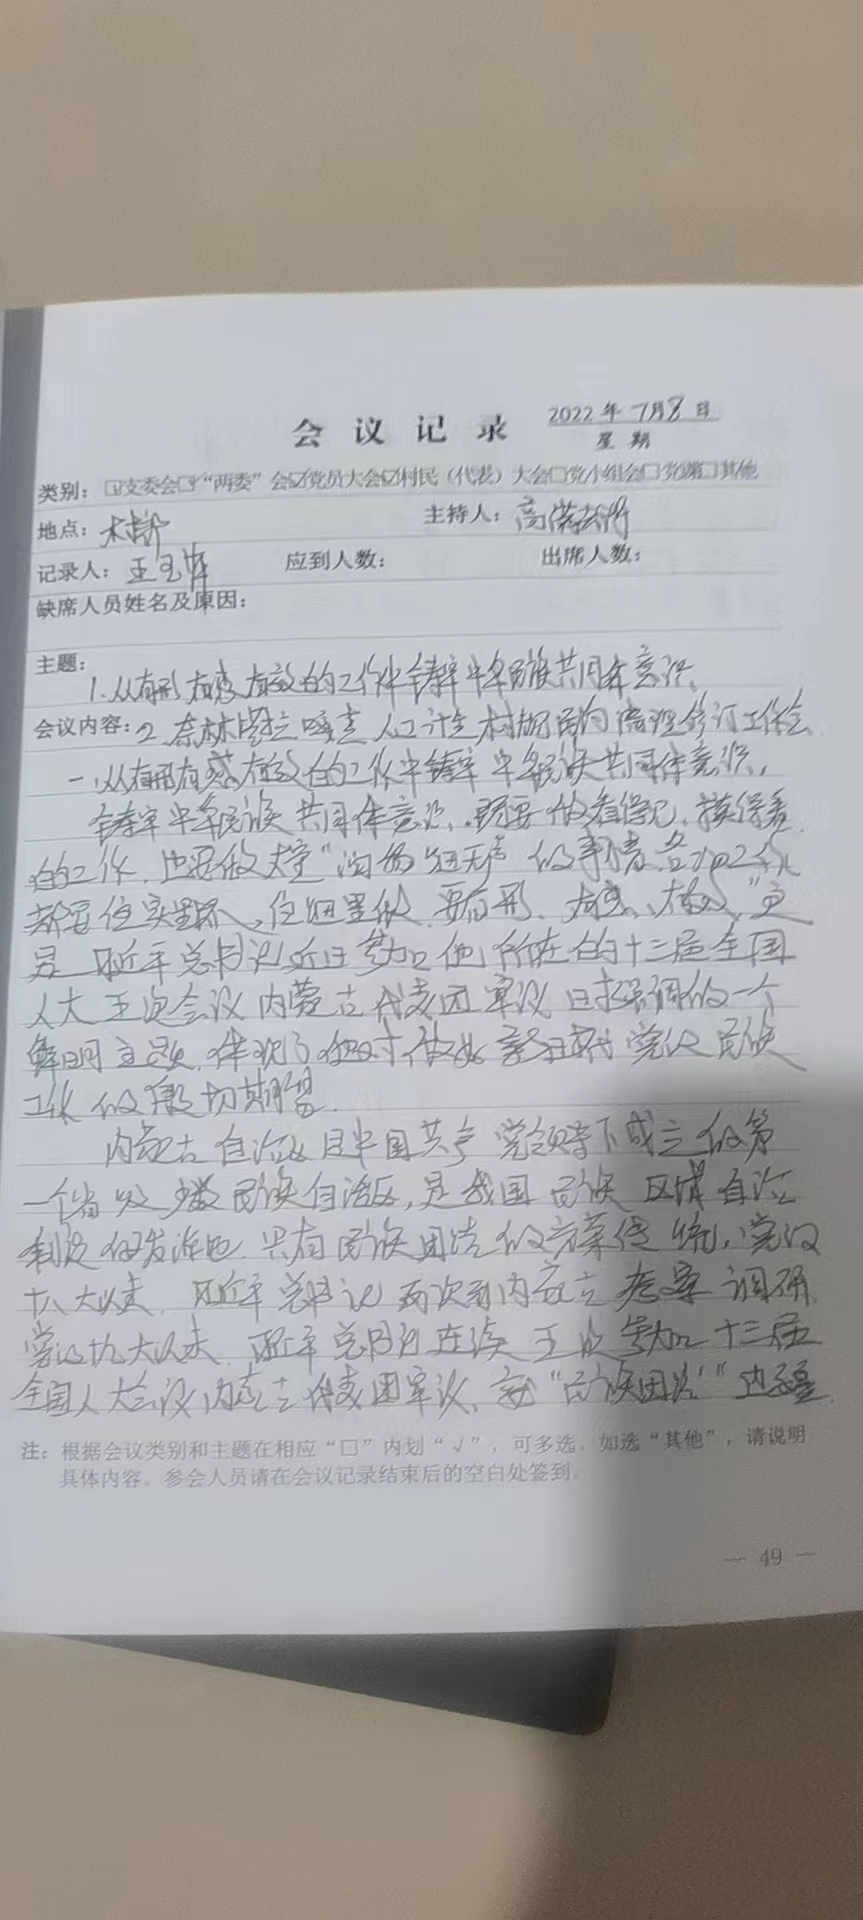 会议记录
2022年7月8日
星期
类别：□支委会□“两委”会☑党员大会☑村民（代表）大会□党小组会□党课□其他
地点：
主持人：高
记录人：王玉
应到人数：
出席人数：
缺席人员姓名及原因：
主题：
1.从有形有感有效的工作中铸牢中华民族共同体意识。
会议内容：2.奈林 嘎查人口计生村规民约 修订工作会
一、从有形有感有效的工作中铸牢中华民族共同体意识，
铸牢中华民族共同体意识，既要做看得见、摸得着
的工作，也要做大量“润物细无声”的事情，各
都要往实里抓、往细里做，要有形、有感、有效，”这
是习近平总书记近日参加他所在的十三届全国
人大五次会议内蒙古代表团审议时强调的一个
鲜明主题，体现了他对做好新时代党的民族
工作的殷切期望。
内蒙古自治区是中国共产党领导下成立的第
一个省级少数民族自治区，是我国民族区域自治
制度的发源地，具有民族团结的光荣传统，党的
十八大以来，习近平总书记两次到内蒙古考察调研，
党的十九大以来，习近平总书记连续五次参加十三届
全国人大会议内蒙古代表团审议，就“民族团结”
注：根据会议类别和主题在相应“□”内划“√”，可多选。如选“其他”，请说明
具体内容。参会人员请在会议记录结束后的空白处签到。
— 49 —